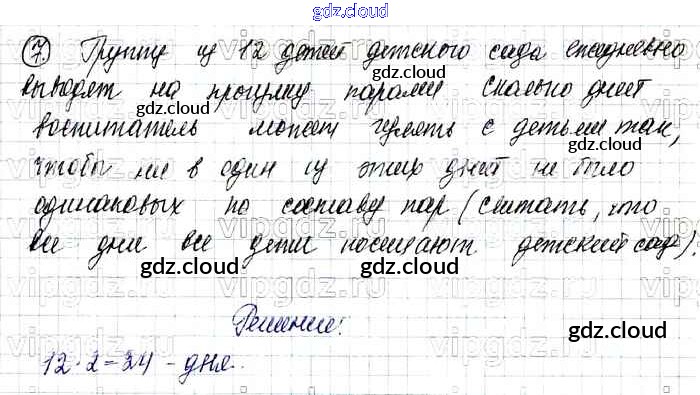 gdz.cloud
7. Группу из 12 детей детского сада ежедневно
gdz.cloud
выводят на прогулку парами сколько дней
gdz.cloud
воспитатель может гулять с детьми так,
gdz.cloud
чтобы ни в один из этих дней не было
gdz.cloud
одинаковых по составу пар (считать, что
все дни все дети посещают детский сад).
gdz.cloud
gdz.cloud
Решение:
gdz.cloud
12·2=24 - дня.